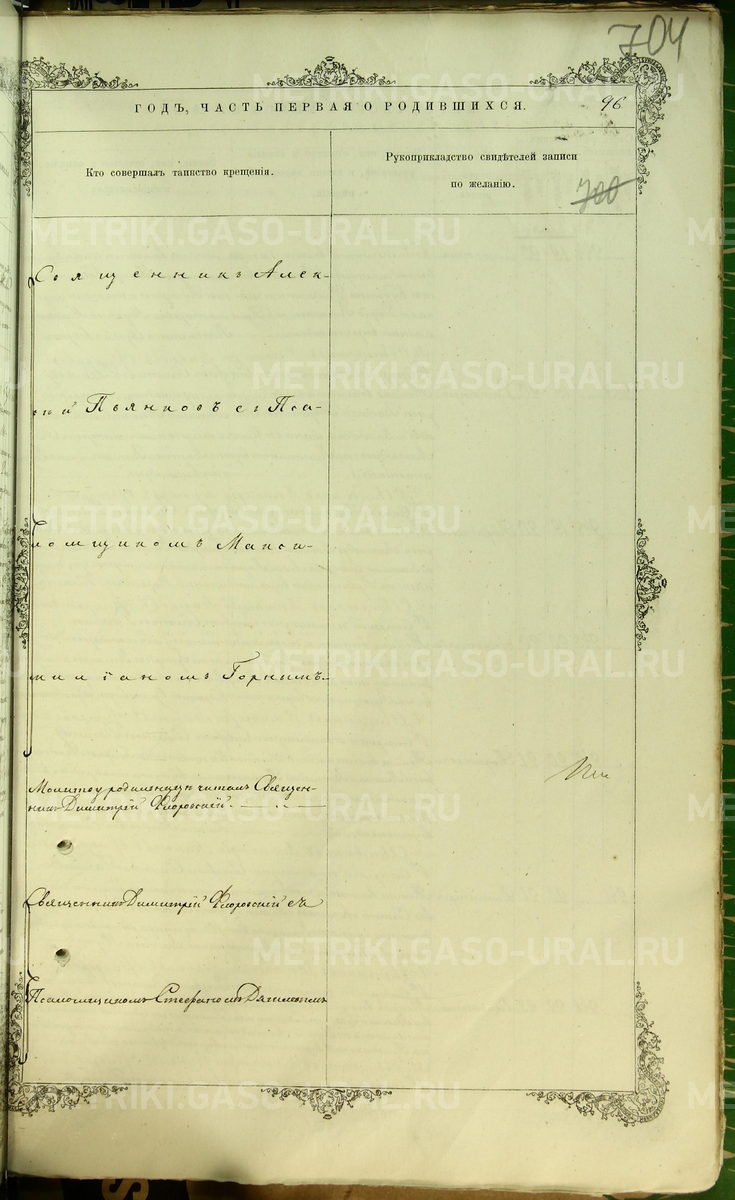 704
ГОДЪ, ЧАСТЬ ПЕРВАЯ О РОДИВШИХСЯ.
96
Кто совершалъ таинство крещенія.
Рукоприкладство свидѣтелей записи
по желанію.
700
METRIKI.GASO-URAL.RU
Священникъ Алек-
сѣй Пьянковъ съ Пса-
ломщикомъ Макси-
миліаномъ Горнымъ.
Молитву родильницѣ читалъ Священ-
никъ Димитрій Флоровскій.
Священникъ Димитрій Флоровскій съ
Псаломщикомъ Стефаномъ